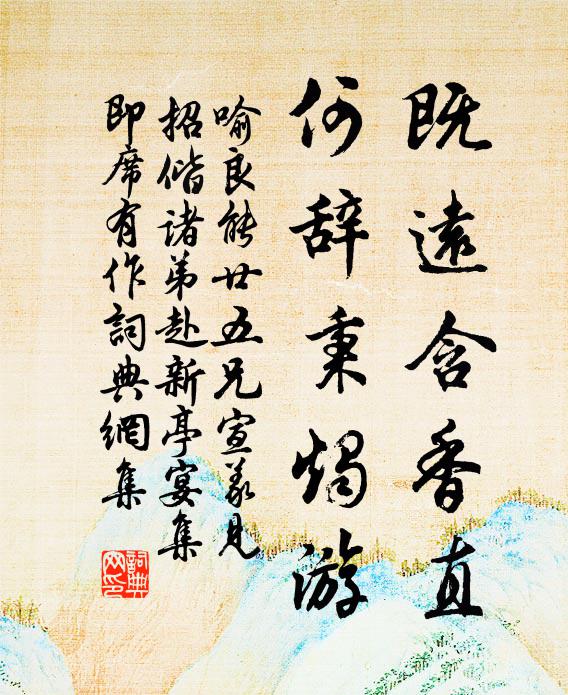 既遠含香直
何辞秉燭游
喻良能廿五兄宣義見
招偕诸弟赴新亭宴集
即席有作詞典網集
詞典网印